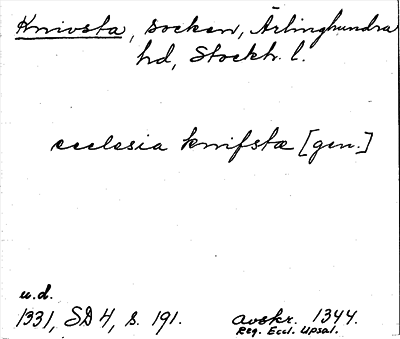 Knivsta, socken, Ärlinghundra
hd, Stockh. l.
ecclesia knifstæ [gen.]
u.d.
1331, SD 4, s. 191.
avskr. 1344.
Reg. Eccl. Upsal.